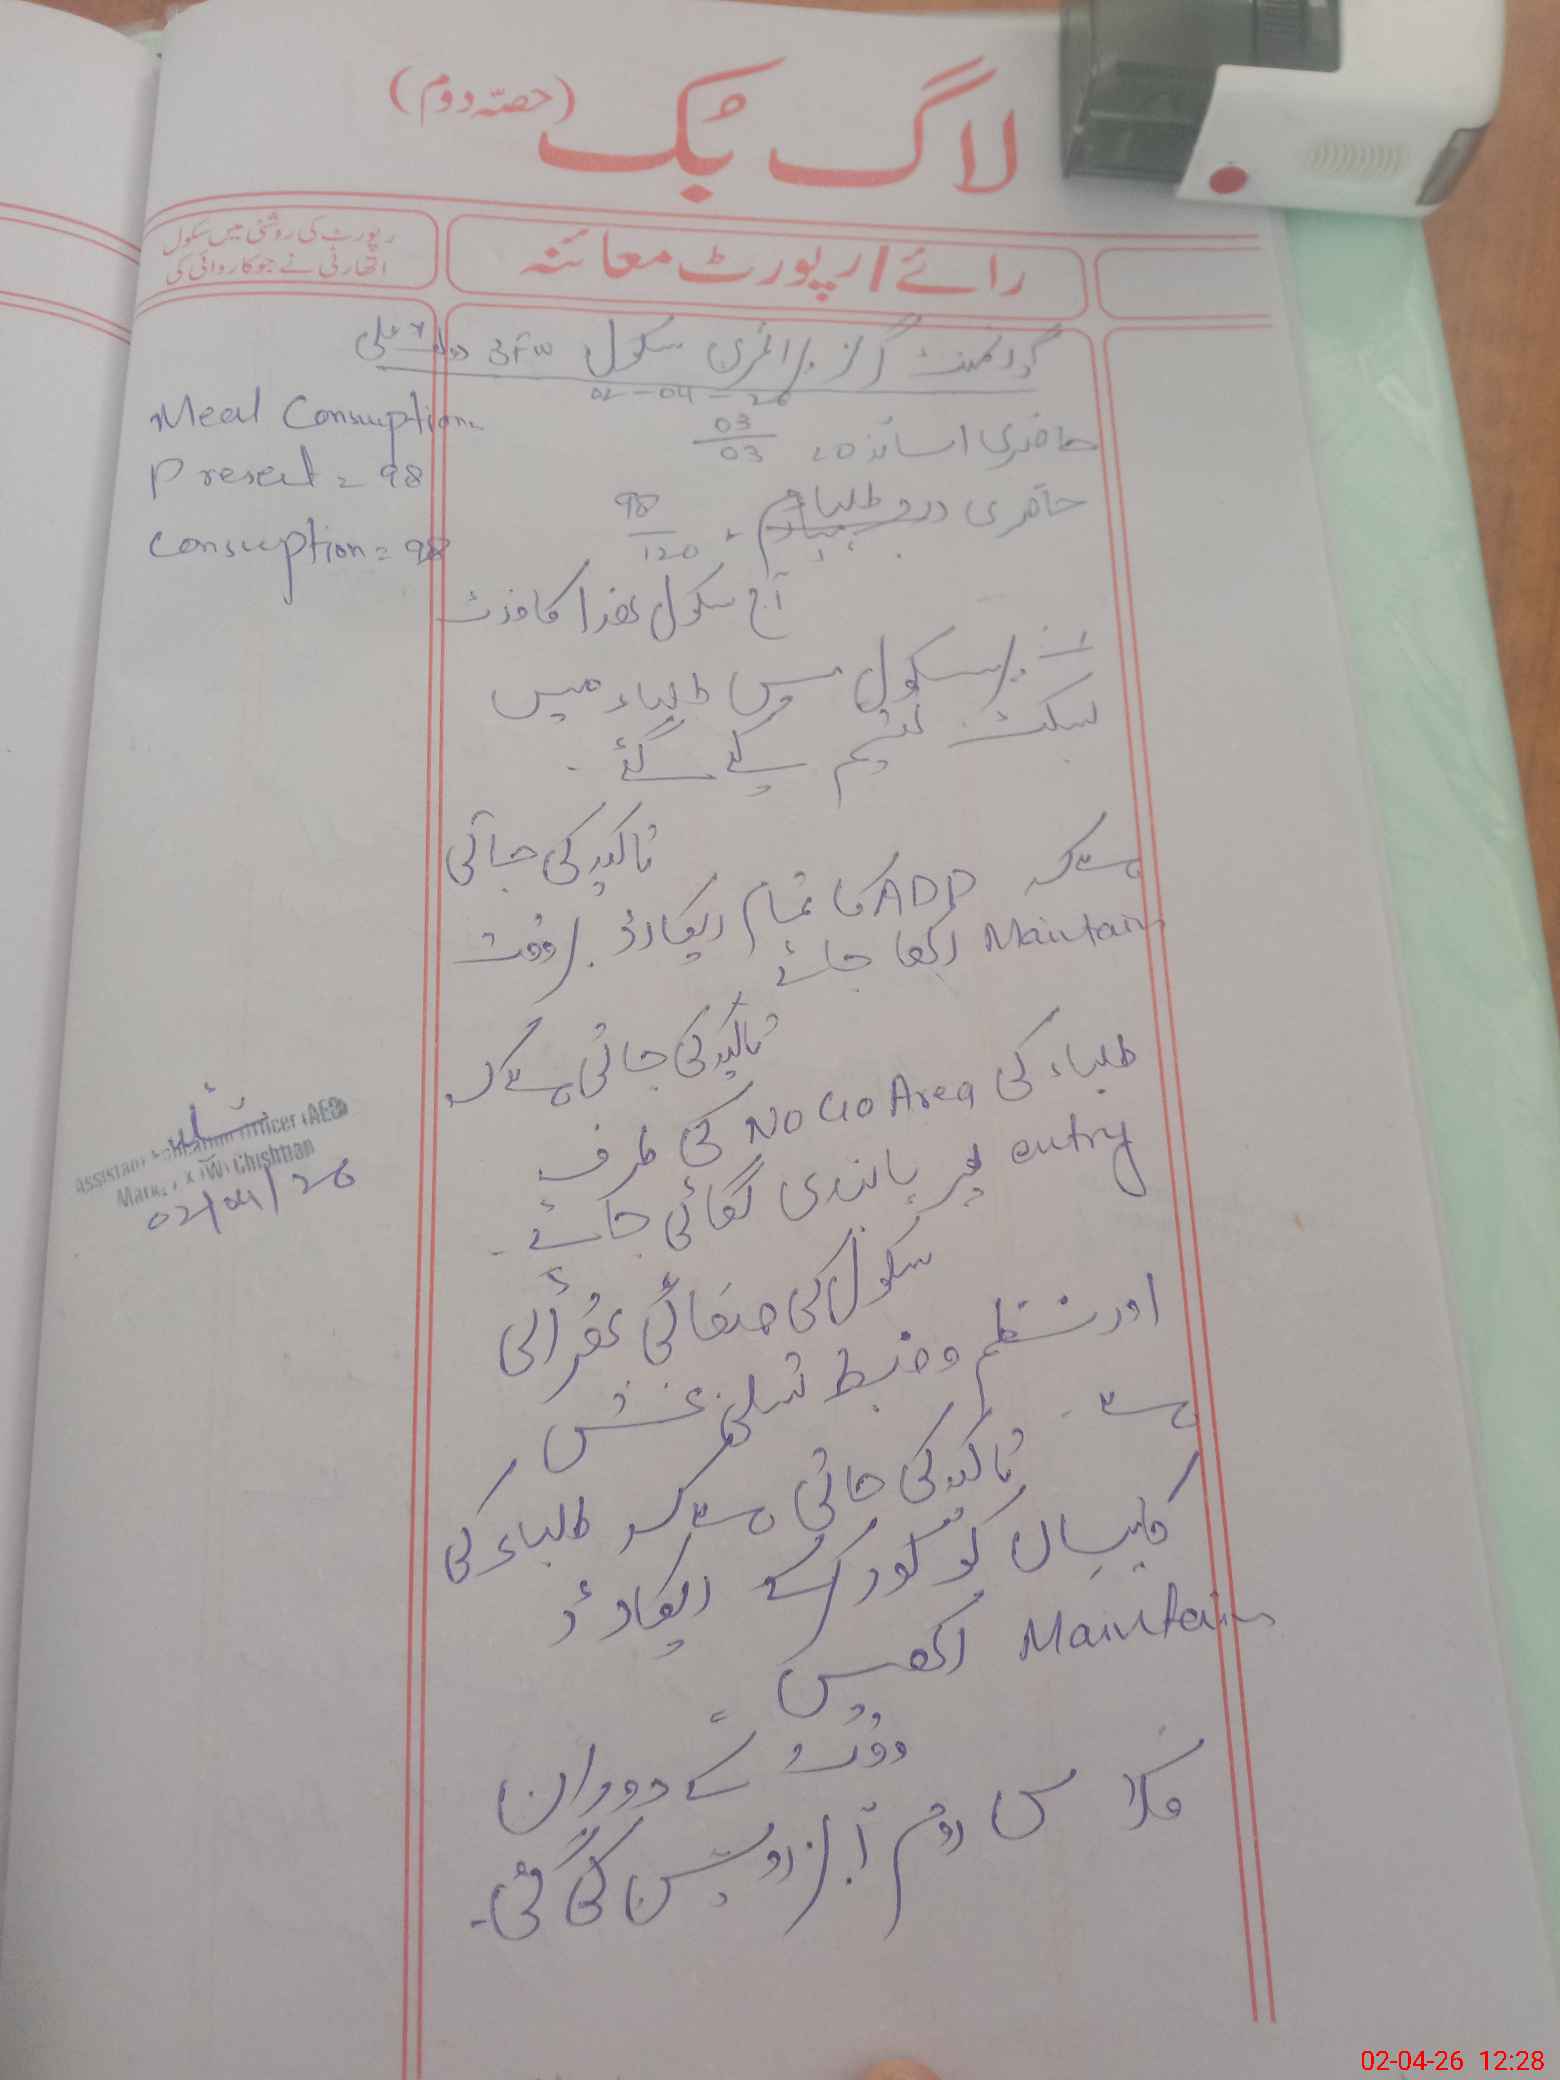 لاگ بُک (حصّہ دوم)
رائے / رپورٹ معائنہ
رپورٹ کی روشنی میں سکول
اتھارٹی نے جو کاروائی کی
گورنمنٹ گرلز پرائمری سکول
02-04-26
حاضری اساتذہ 03/03
حاضری طلباء 98/120
آج سکول ھذا کا وزٹ
سکول میں طلباء میں
بسکٹ تقسیم کیے گئے۔
تاکید کی جاتی
ہے کہ ADP کا تمام ریکارڈ بروقت
Maintain رکھا جائے
تاکید کی جاتی ہے کہ
طلباء کی No Go Area کی طرف
entry پر پابندی لگائی جائے۔
سکول کی صفائی ستھرائی
اور نظم و ضبط تسلی بخش
ہے۔
تاکید کی جاتی ہے کہ طلباء کی
کاپیاں کور کرکے ریکارڈ
Maintain رکھیں
وزٹ کے دوران
کلاس روم آبزرویشن کی گئی۔
Meal Consuption
Present = 98
Consuption = 98
Assistant Education Officer (AEO)
Markaz (W) Chishtian
02/04/26
02-04-26 12:28